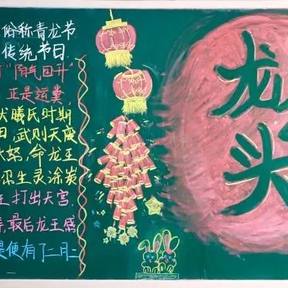 俗称青龙节
传统节日
"阳气回升"
正是运冀
伏曦氏时期
田,武则天废
大怒,命龙王
不忍生灵涂炭
打出天宫,
最后龙王感
是便有了二月二
龙
头